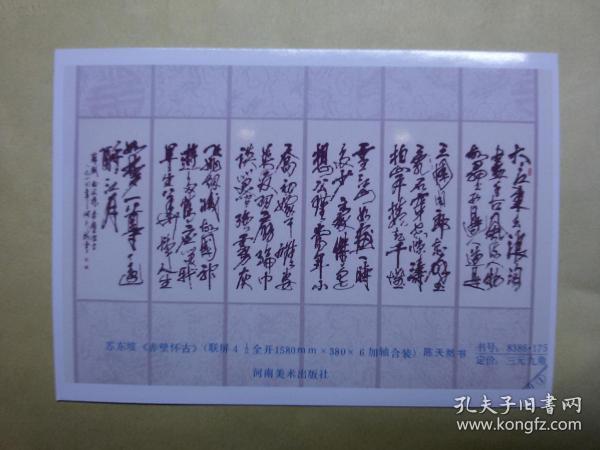 大江东去浪淘
尽千古风流人物
故垒西边人道是
三国周郎赤壁
乱石穿空惊涛
拍岸卷起千堆
雪江山如画一时
多少豪杰遥
想公瑾当年小
乔初嫁了雄姿
英发羽扇纶巾
谈笑间强虏灰
飞烟灭故国神
游多情应笑我
早生华发人生
如梦一尊还
酹江月
苏东坡《赤壁怀古》(联屏 4 ½全开1580mm×380×6加轴合装)陈天然书
书号:8386·175
定价:三元九角
河南美术出版社
孔夫子旧书网
www.kongfz.com